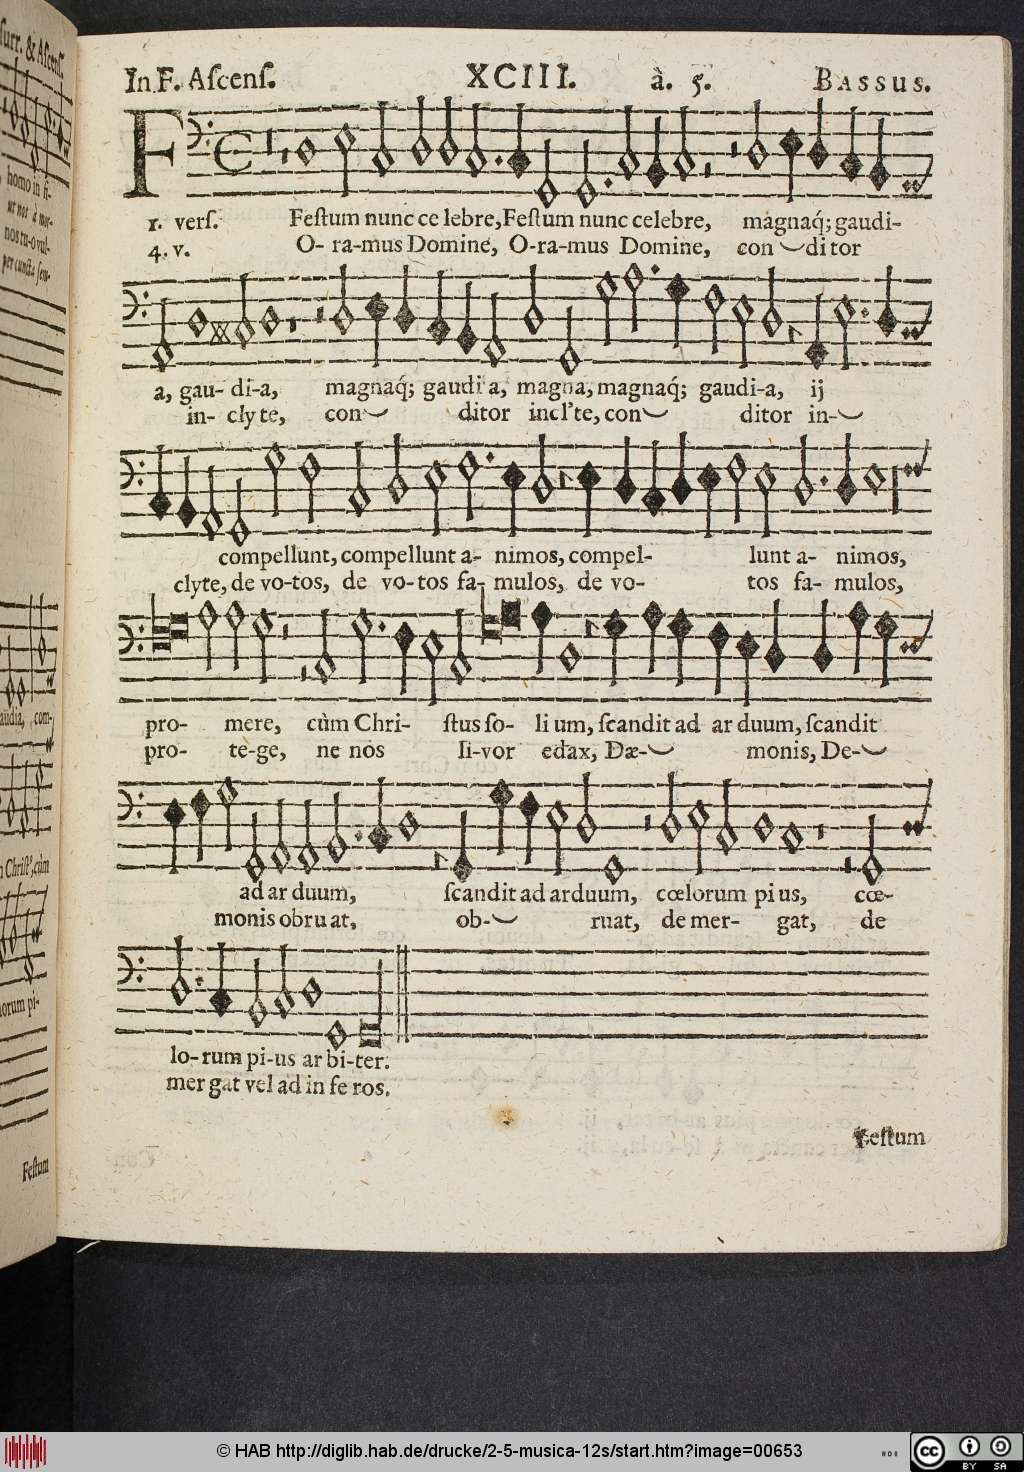 In F. Aſcenſ. XCIII. à. 5. BASSUS.
F
1. verſ. Feſtum nunc ce lebre, Feſtum nunc celebre, magnaq́; gaudi-
4. v. O- ra-mus Domine, O-ra-mus Domine, con ditor
a, gau- di-a, magnaq́; gaudi a, magna, magnaq́; gaudi-a, ij
in- clyte, con ditor incl'te, con ditor in-
compellunt, compellunt a- nimos, compel- lunt a- nimos,
clyte, de vo-tos, de vo-tos fa- mulos, de vo- tos fa- mulos,
pro- mere, cùm Chri- ſtus ſo- li um, ſcandit ad ar duum, ſcandit
pro- te-ge, ne nos ſi-vor edax, Dæ- monis, De-
ad ar duum, ſcandit ad arduum, cœlorum pi us, cœ-
monis obru at, ob- ruat, de mer- gat, de
lo-rum pi-us ar bi-ter.
mer gat vel ad in fe ros.
Feſtum
ſurr. & Aſcenſ.
homo in ſi-
ur nos à mor-
nos tu-o vul-
per cuncta ſem-
audia, com-
Chriſt', cùm
lorum pi-
Feſtum
© HAB http://diglib.hab.de/drucke/2-5-musica-12s/start.htm?image=00653
cc BY SA